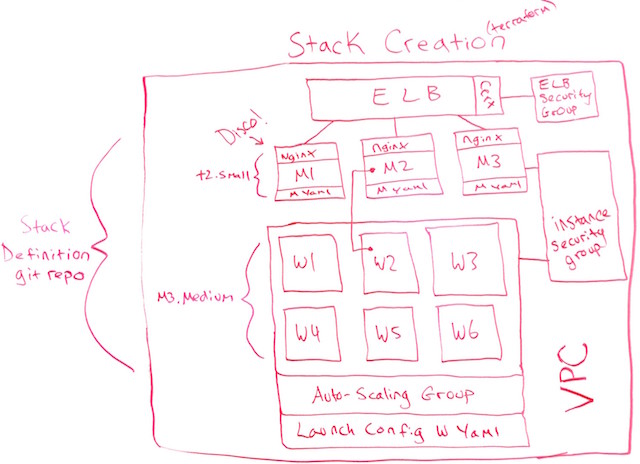 Stack Creation (terraform)
ELB
Cert
ELB
Security
Group
Disco!
nginx
M1
M Yaml
nginx
M2
M Yaml
nginx
M3
M Yaml
t2.small
instance
security
group
Stack
Definition
git repo
W1
W2
W3
W4
W5
W6
M3.Medium
Auto-Scaling Group
Launch Config W Yaml
VPC